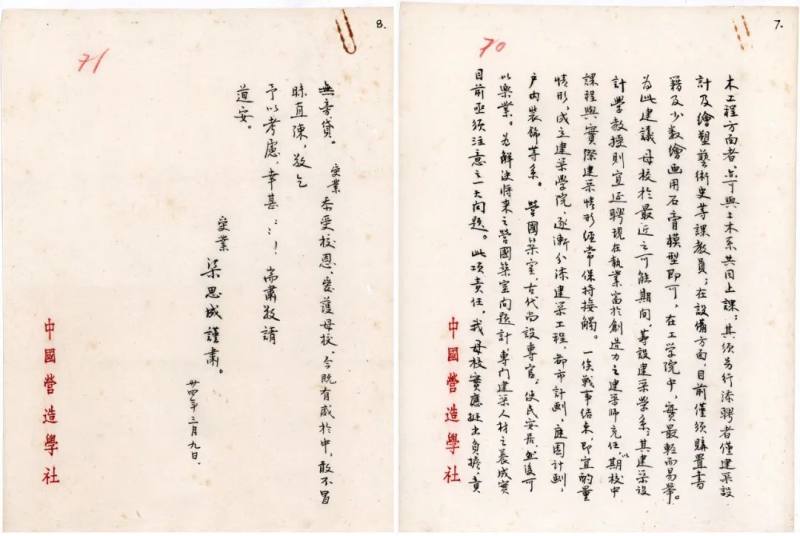 7.
70
木工程方面者,亦可與土木系共同上課;其須另行添聘者僅建築設
計及繪塑藝術史等課教員;在設備方面,目前僅須購置書
籍及少數繪画用石膏模型即可。在工学院中,實最輕而易舉。
為此建議母校於最近之可能期間,籌設建築學系;其建築設
計學教授則宜延聘現在執業富於創造力之建築師充任,以期校中
課程與實際建築情形經常保持接觸。一俟戰事結束,即宜酌量
情形,成立建築学院,逐漸分添建築工程,都市計劃,庭園計劃,
户內裝飾等系。營國築室,古代尚設專官,使民安居,然後可
以樂業。為解決將來之營國築室問題計,專門建築人材之養成實
目前亟須注意之一大問題。此項責任,我母校實應挺出負擔,責
中國營造學社
8.
71
無旁貸。受業忝受校恩,愛護母校,今既有感於中,敢不冒
昧直陳,敬乞
予以考慮,幸甚::!耑肅敬請
道安。
受業 梁思成謹肅。
卅四年三月九日.
中國營造學社